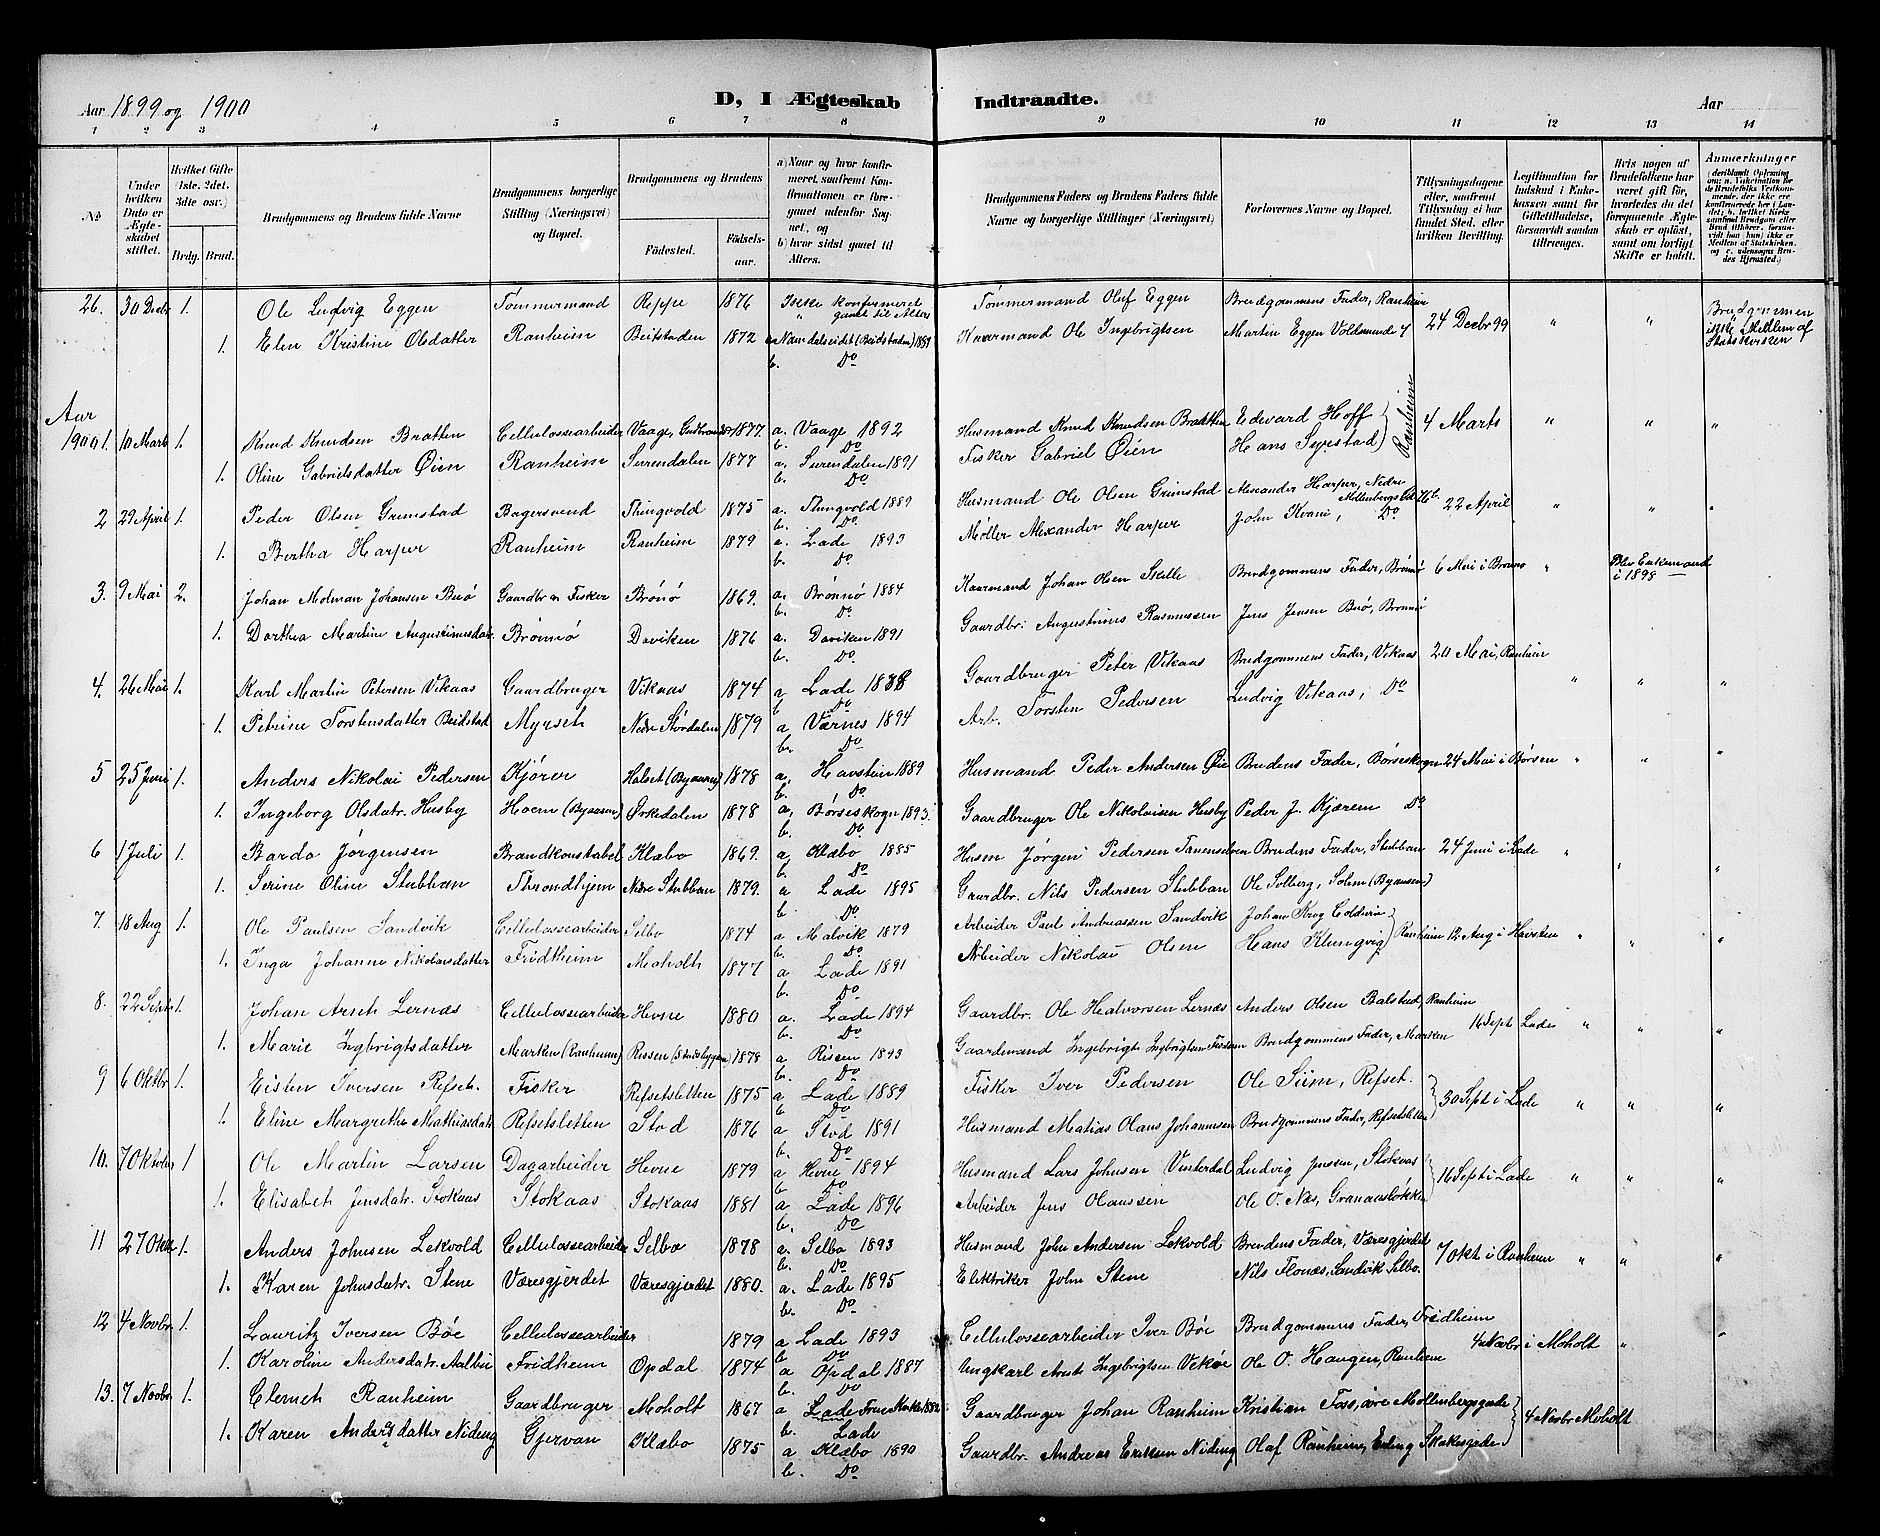 Aar 1899 og 1900
D, I Ægteskab Indtraadte.
Aar
1 2 3 4 5 6 7 8 9 10 11 12 13 14
No
Under hvilken Dato er Ægteskabet stiftet.
Hvilket Gifte (1ste, 2det, 3die osv.)
Brdg. Brud.
Brudgommens og Brudens fulde Navne
Brudgommens borgerlige Stilling (Næringsvei) og Bopæl.
Brudgommens og Brudens
Fødested. Fødselsaar.
a) Naar og hvor konfirmeret, saafremt Konfirmationen er foregaaet udenfor Sognet, og
b) hvor sidst gaaet til Alters.
Brudgommens Faders og Brudens Faders fulde Navne og borgerlige Stillinger (Næringsvei)
Forlovernes Navne og Bopæl.
Tillysningsdagene eller, saafremt Tillysning ei har fundet Sted, efter hvilken Bevilling.
Legitimation for Indskud i Enkekassen samt for Giftetilladelse, forsaavidt saadan tiltrænges.
Hvis nogen af Brudefolkene har været gift før, hvorledes da det foregaaende Ægteskab er opløst, samt om lovligt Skifte er holdt.
Anmærkninger
26. 30 Decbr 1. Ole Ludvig Eggen Tømmermand Reppe 1876 Ikke konfirmeret " gaaet til Alters Tømmermand Oluf Eggen Brudgommens Fader, Ranheim 24 Decbr 99 " " Brudgommen ikke Medlem af Statskirken
1. Elen Kristine Olsdatter Ranheim Beitstaden 1872 a Namdalseidet (Beidstaden) 1889 b. Do Kaarmand Ole Ingebrigtsen Martin Eggen
Aar
1900 1. 10 Marts 1. Knud Knudsen Bratten Cellulossearbeider Vaage, 1877. a. Vaage 1892 b. Do Husmand Knud Knudsen Bratten Edevard Hoff Ranheim 4 Marts " " "
1. Oline Gabrielsdatter Øien Ranheim Surendalen 1877 a. Surendalen 1891 b. Do Fisker Gabriel Øien Hans Sejestad
2 29 April 1. Peder Olsen Grimstad Bagersvend Thingvold 1875 a. Thingvold 1889 b. Do Husmand Ole Olsen Grimstad Alexander Harper, Nedre 22 April " " "
1. Bertha Harper Ranheim Ranheim 1879 a. Lade 1893 b. Do Møller Alexander Harper John Kvam, Do
3. 9 Mai 2. Johan Molman Johansen Buø Gaardbr og Fisker Brønø 1869. a. Brønnø 1884 b. Do Kaarmand Johan Olsen Skille Brudgommens Fader, Brønnø 6 Mai i Brønø " Blev Enkemand i 1898
1. Dorthea Martine Augustinusdatr. Brønnø Daviken 1876 a. Daviken 1891 b. Do Gaardbr: Augustinus Rasmussen Jens Jensen Buø, Brønnø
4. 26 Mai 1. Karl Martin Petersen Vikaas Gaardbruger Vikaas 1874 a Lade 1888 b Do Gaardbruger Peter Vikaas Brudgommens Fader, Vikaas 20 Mai, Ranheim " " "
1. Petrine Torstensdatter Beidstad Myrseth Nedre Størdalen 1879 a Værnes 1894 b. Do Arb. Torsten Pedersen Ludvig Vikaas, Do
5 25 Juni 1. Anders Nikolai Pedersen Kjører Halset (Byaasen) 1878 a, Havstein 1889 b. Do Husmand Peder Andersen Øie Brudens Fader, Børseskogn 24 Mai i Børsen " " "
1. Ingeborg Olsdatr. Husby Hoem (Byaasen) Ørkedalen 1878 a, Børseskogn 1893 b. Do Gaardbruger Ole Nikolaisen Husby Peder J. Kjærem Do
6 1 Juli 1. Bardo Jørgensen Brandkonstabel Klæbo 1869. a, Klæbo 1885 b. Do Husm Jørgen Pedersen Brudens Fader, Stubban 24 Juni i Lade " " "
1. Serine Oline Stubban Throndhjem Nedre Stubban 1879. a Lade 1895 b. Do Gaardbr. Nils Pedersen Stubban Ole Solberg, Solem (Byaasen)
7. 18 Aug 1. Ole Paulsen Sandvik Cellulossearbeider Selbo 1874 a Malvik 1879 b. Do Arbeider Paul Andreassen Sandvik Johan Krog Coldevin Ranheim 12 Aug i Havsten " " "
1. Inga Johanne Nikolaisdatter Fridheim Moholt 1877 a Lade 1891 b. Do Arbeider Nikolai Olsen Hans Klungvig
8. 22 Septr 1. Johan Arnt Lernæs Cellulossearbeider Hevne 1880 a. Lade 1894 b. Do Gaardbr. Ole Halvorsen Lernæs Anders Olsen Balstad, Ranheim 16 Sept Lade " " "
1. Marie Ingbrigtsdatter Marken (Ranheim) Rissen (Stadsbygden) 1878 a Rissen 1893 b. Do Gaardmand Ingebrigt Ingbrigtsen Brudgommens Fader, Marken
9 6 Oktbr 1. Eisten Iversen Refset. Fisker Refsetsletten 1875 a Lade 1889 b Do Fisker Iver Pedersen Ole Siim, Refset. 30 Sept i Lade " " "
1. Eline Margrethe Mathiasdatr Refsetsletten Stod 1876 a Stod 1891 b. Do Husmand Matias Olaus Johannesen Brudgommens Fader, Refsetsletten
10. 7 Oktober 1 Ole Martin Larsen Dagarbeider Hevne 1879 a Hevne 1894 b. Do Husmand Lars Johnsen Vinterdal Ludvig Jensen, Stokaas 16 Sept i Lade " " "
1. Elisabet Jensdatr. Stokaas Stokaas Stokaas 1881 a Lade 1896 b. Do Arbeider Jens Olaussen Ole O. Næs, Granaasløkken
11 27 Oktbr 1. Anders Johnsen Lekvold Cellulossearbeider Selbo 1878 a. Selbo 1893 b. Do Husmand John Andersen Lekvold Brudens Fader, Væresgjerdet 7 Okt i Ranheim " " "
1. Karen Johnsdatr. Stene Væresgjerdet Væresgjerdet 1880. a. Lade 1895 b. Do Elektriker John Stene Nils Flonæs, Sandvik Selbo.
12 4 Novbr. 1. Lauritz Iversen Bøe Cellulossearbeider 1879 a Lade 1893 b Do Cellulossearbeider Iver Bøe Brudgommens Fader, Fridheim 4 Novbr i Moholt " "
1. Karoline Andersdatr. Aalbu Fridheim Opdal 1874 a Opdal 1887 b. Do Ungkarl Arnt Ingebrigtsen Vekøe Ole O. Haugen, Ranheim
13. 7 Novbr. 1. Clemet Ranheim Gaardbruger Moholt 1867 a Lade Frue Kirke 1882 b. Lade Gaardbruger Johan Ranheim Kristian Foss, øvre Møllenbergsgade 4 Novbr Moholt
1. Karen Andersdatter Nideng Gjervan Klæbo 1875 a Klæbo 1890 b. Do Gaardbr. Andreas Eriksen Nideng Olaf Ranheim, Erling Skakesgade